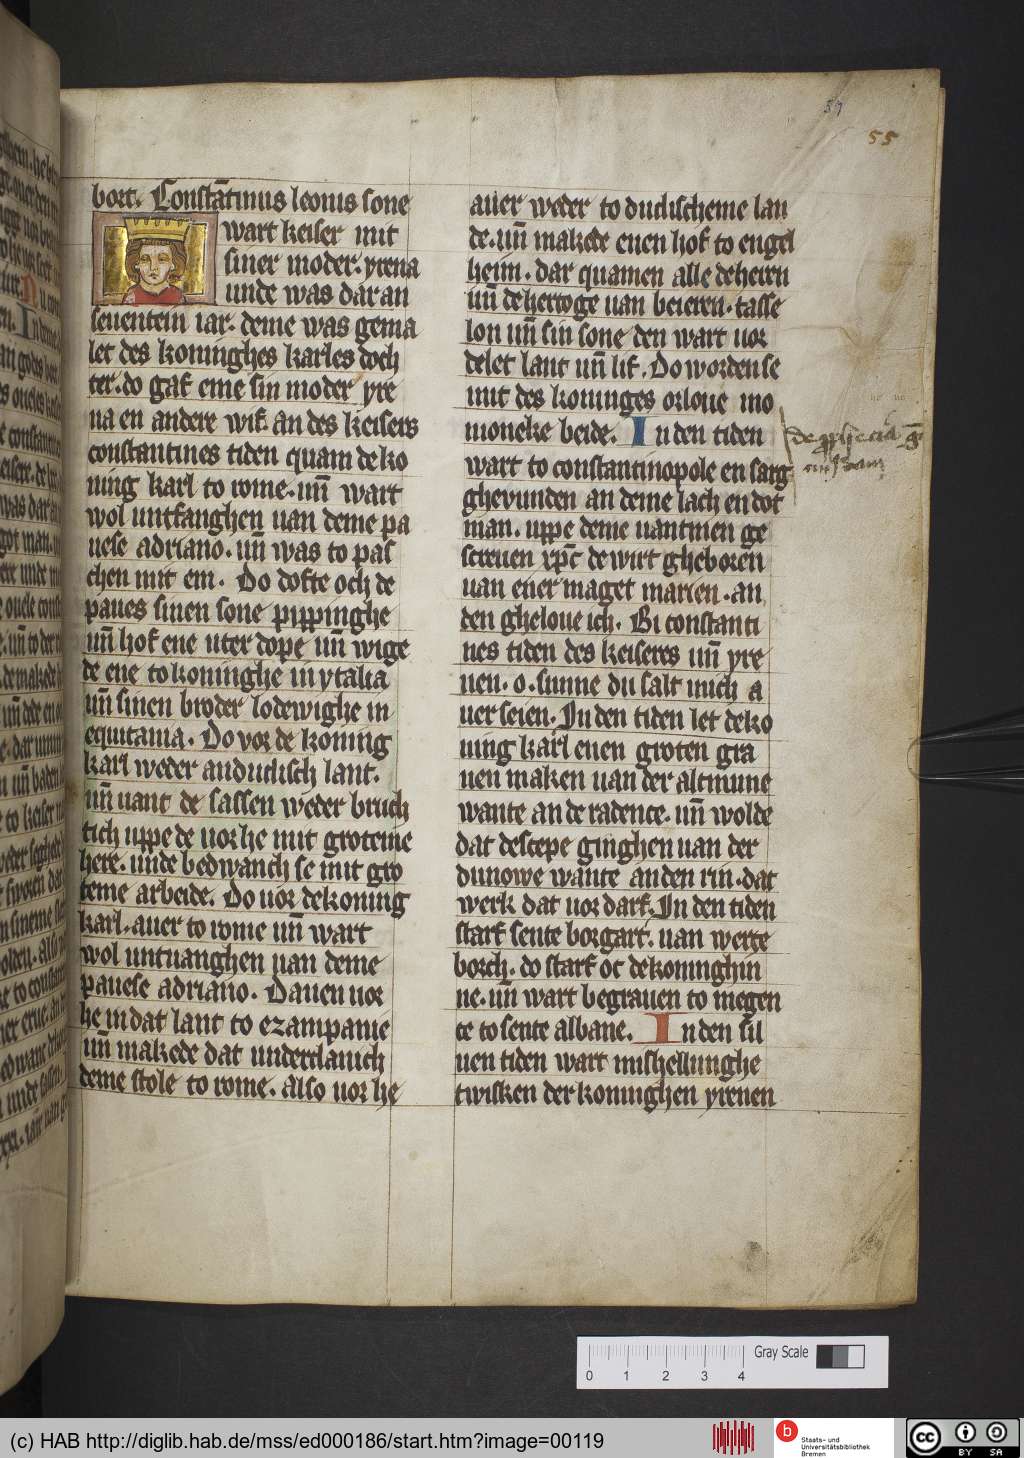 89
55
bort. Constātinus leonis sone
wart keiser mit
siner moder. yrena
unde was dar an
seuentein iar. deme was gema
let des koninghes karles doch
ter. do gaf eme sin moder yre
na en andere wif. an des keisers
constantines tiden quam de ko
ning karl to rome. uñ wart
wol untfanghen uan deme pa
uese adriano. uñ was to pas
chen mit em. Do dofte och de
paues sinen sone pippinghe
uñ hof ene uter dope uñ wige
de ene to koninghe in ytalia
uñ sinen broder lodewighe in
equitania. Do vor de koning
karl weder an dudisch lant.
uñ uant de sassen weder bruch
tich uppe de uor he mit groteme
here. unde bedwanch se mit gro
teme arbeide. Do uor de koning
karl. auer to rome uñ wart
wol untuanghen uan deme
pauese adriano. Dauen uor
he in dat lant to ezampanie
uñ makede dat underdanich
deme stole to rome. also uor he
auer weder to dudischeme lan
de. uñ makede enen hof to engel
heim. dar quamen alle de heren
uñ de hertoge uan beieren. tasse
lon uñ sin sone den wart uor
delet lant uñ lif. Do worden se
mit des koninges orloue mo
moneke beide. In den tiden
wart to constantinopole en sarg
ghevunden an deme lach en dot
man. uppe deme uantmen ge
screuen xp̄c de wirt gheboren
uan ener maget marien. an
den gheloue ich. Bi constanti
nes tiden des keiseres uñ yre
nen. o. sunne du salt mich a
uer seien. In den tiden let de ko
ning karl enen groten gra
uen maken uan der altmune
wante an de radence. uñ wolde
dat de scepe ginghen uan der
dunowe wante an den rin. dat
werk dat uor darf. In den tiden
starf sente borgart. uan werte
borch. do starf oc de koninghin
ne. uñ wart begrauen to megen
ce to sente albane. In den sul
uen tiden wart mishellunghe
twisken der koninghen yrenen
Gray Scale
0 1 2 3 4
(c) HAB http://diglib.hab.de/mss/ed000186/start.htm?image=00119
b
Staats- und
Universitätsbibliothek
Bremen
cc
BY SA